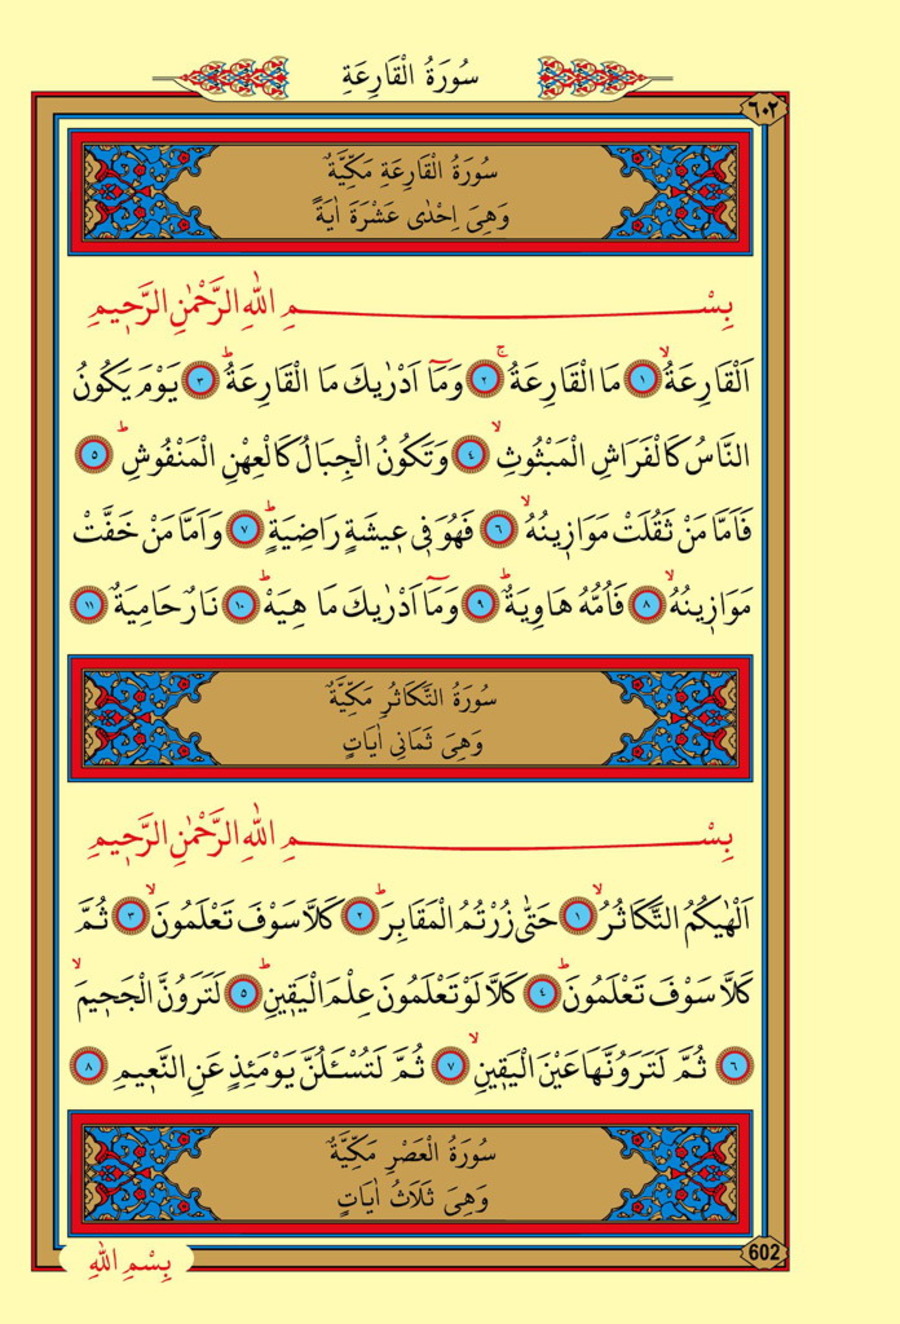 سُورَةُ الْقَارِعَةِ
٦٠٢
سُورَةُ الْقَارِعَةِ مَكِّيَّةٌ
وَهِىَ اِحْدٰى عَشْرَةَ اٰيَةً
بِسْمِ اللّٰهِ الرَّحْمٰنِ الرَّحٖيمِ
اَلْقَارِعَةُۙ ١ مَا الْقَارِعَةُۚ ٢ وَمَٓا اَدْرٰيكَ مَا الْقَارِعَةُؕ ٣ يَوْمَ يَكُونُ
النَّاسُ كَالْفَرَاشِ الْمَبْثُوثِۙ ٤ وَتَكُونُ الْجِبَالُ كَالْعِهْنِ الْمَنْفُوشِؕ ٥
فَاَمَّا مَنْ ثَقُلَتْ مَوَازٖينُهُۙ ٦ فَهُوَ فٖى عٖيشَةٍ رَاضِيَةٍؕ ٧ وَاَمَّا مَنْ خَفَّتْ
مَوَازٖينُهُۙ ٨ فَاُمُّهُ هَاوِيَةٌؕ ٩ وَمَٓا اَدْرٰيكَ مَا هِيَهْؕ ١٠ نَارٌ حَامِيَةٌ ١١
سُورَةُ التَّكَاثُرِ مَكِّيَّةٌ
وَهِىَ ثَمَانِى اٰيَاتٍ
بِسْمِ اللّٰهِ الرَّحْمٰنِ الرَّحٖيمِ
اَلْهٰيكُمُ التَّكَاثُرُۙ ١ حَتّٰى زُرْتُمُ الْمَقَابِرَؕ ٢ كَلَّا سَوْفَ تَعْلَمُونَۙ ٣ ثُمَّ
كَلَّا سَوْفَ تَعْلَمُونَؕ ٤ كَلَّا لَوْ تَعْلَمُونَ عِلْمَ الْيَقٖينِؕ ٥ لَتَرَوُنَّ الْجَحٖيمَۙ
٦ ثُمَّ لَتَرَوُنَّهَا عَيْنَ الْيَقٖينِۙ ٧ ثُمَّ لَتُسْـَٔلُنَّ يَوْمَئِذٍ عَنِ النَّعٖيمِ ٨
سُورَةُ الْعَصْرِ مَكِّيَّةٌ
وَهِىَ ثَلَاثُ اٰيَاتٍ
602
بِسْمِ اللّٰهِ